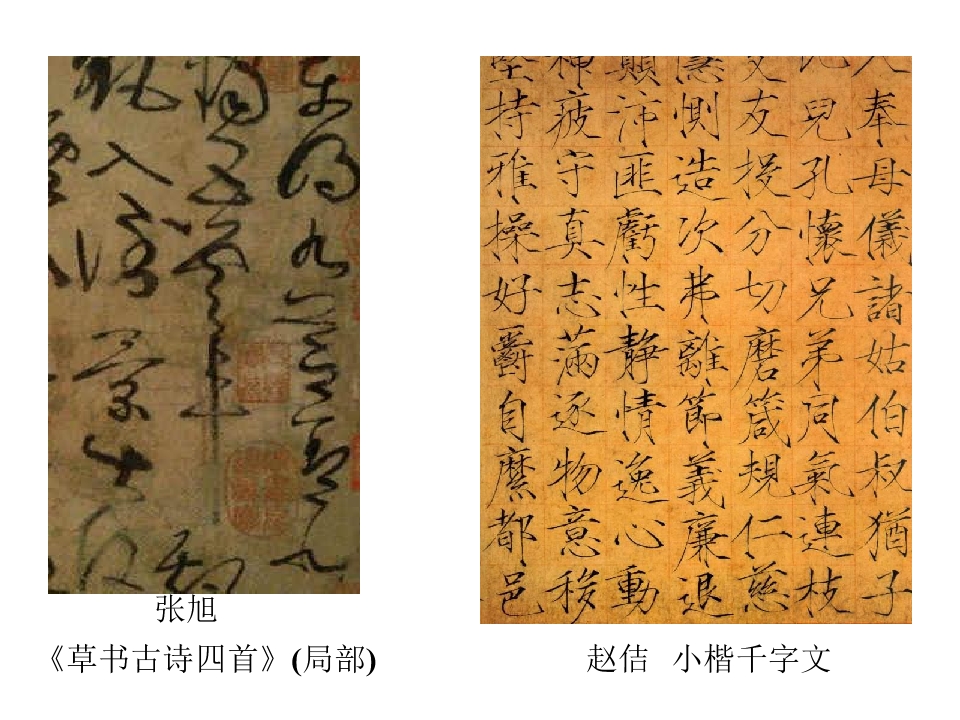 東明九芝蓋北
燭五雲車飄
飖入倒景出没
张旭
《草书古诗四首》(局部)
入奉母儀諸姑伯叔猶子
比兒孔懷兄弟同氣連枝
交友投分切磨箴規仁慈
隱惻造次弗離節義廉退
顛沛匪虧性靜情逸心動
神疲守真志滿逐物意移
堅持雅操好爵自縻都邑
赵佶 小楷千字文